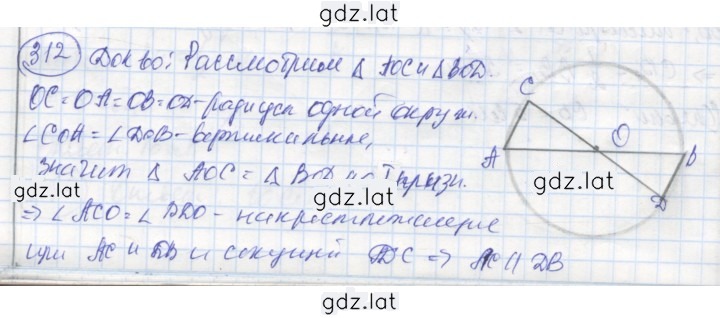 gdz.lat
312 Док-во: Рассмотрим Δ AOC и Δ BOD.
OC=OA=OB=OD-радиусы одной окруж.
∠COA=∠DOB-вертикальные,
значит Δ AOC=Δ BOD по I призн.
gdz.lat
gdz.lat
⇒ ∠ACO=∠BDO-накрестлежащие
при AC и DB и секущей DC ⇒ AC || DB
C
O
A
B
D
gdz.lat